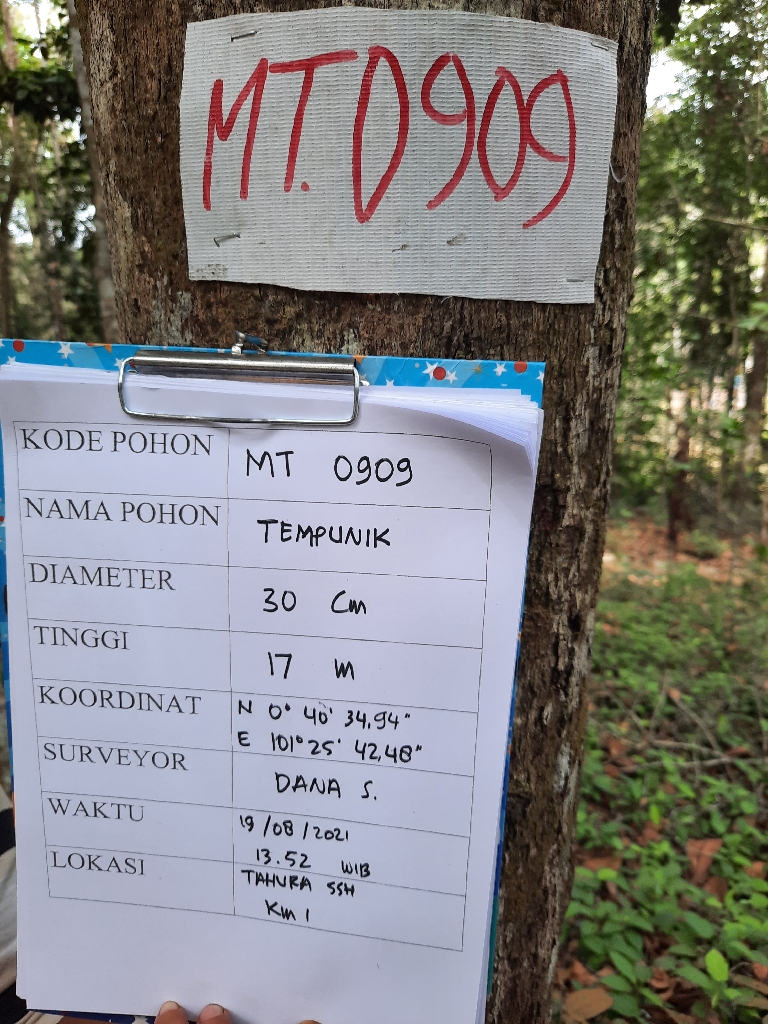 MT.0909
KODE POHON MT 0909
NAMA POHON TEMPUNIK
DIAMETER 30 Cm
TINGGI 17 m
KOORDINAT N 0° 40' 34,94"
E 101° 25' 42,48"
SURVEYOR DANA S.
WAKTU 19/08/2021
13.52 WIB
LOKASI TAHURA SSH
Km 1